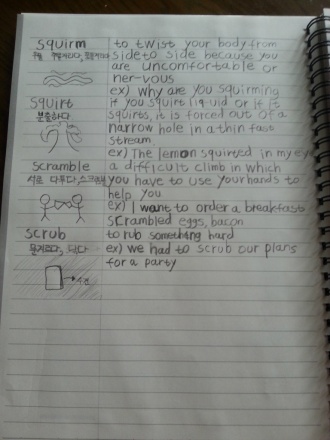 squirm to twist your body from
side to side because you
are uncomfortable or
ner-vous
ex) why are you squirming
squirt if you squirt liquid or it
분출하다 squirts, it is forced out of a
narrow hole in a thin fast
stream
ex) The lemon squirted in my eye
scramble a difficult climb in which
서로 다투다, you have to use your hands to
help you
ex) I want to order a breakfast
scrambled eggs, bacon
scrub to rub something hard
ex) we had to scrub our plans
for a party